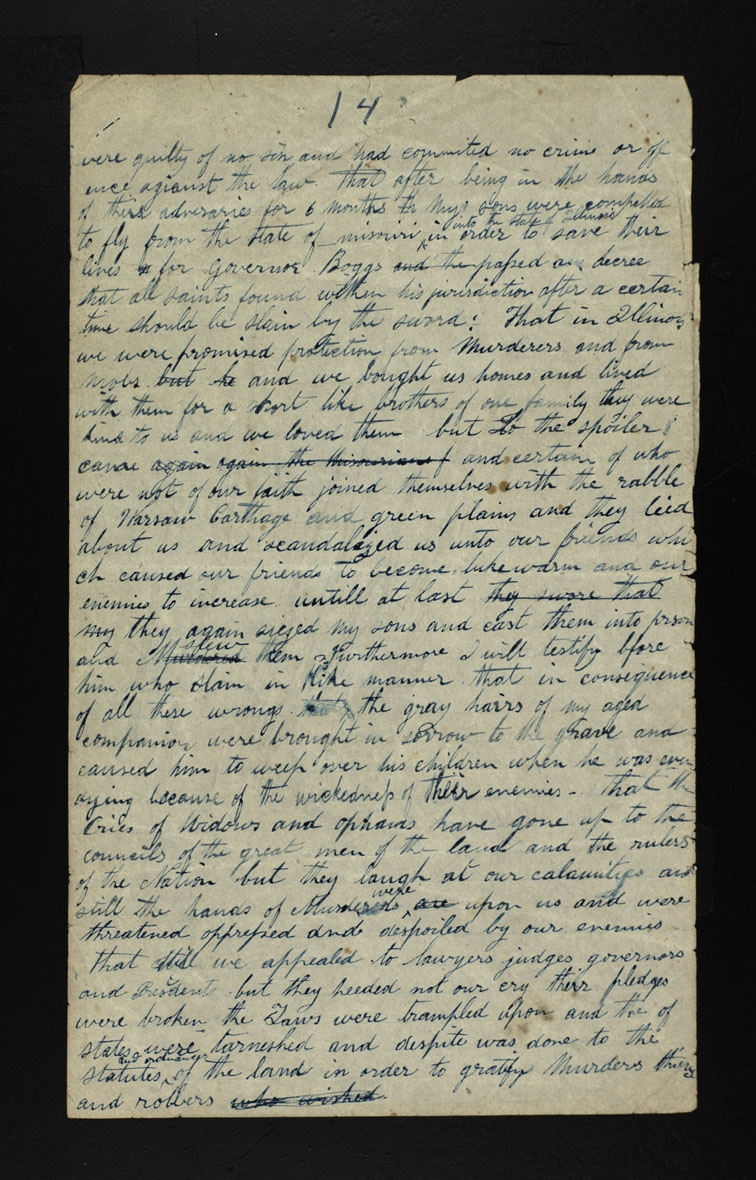 14
were guilty of no sin and had commited no crime or off
ence against the law. That after being in the hands
of their adversaries for 6 months my sons were compelled
into the state of Illinois
to fly from the state of missouri in order to save their
lives for Governor Boggs and the passed a decree
that all saints found within his jurisdiction after a certain
time should be slain by the sword: That in Illinois
we were promised protection from Murderers and from
mobs but he and we bought us homes and lived
with them for a short like brothers of one family they were
kind to us and we loved them but Lo the spoiler
came again again the Missourians f and certain of who
were not of our faith joined themselves with the rabble
of Warsaw Carthage and green plains and they lied
about us and scandalized us unto our friends whi
ch caused our friends to become lukewarm and our
enemies to increase untill at last they swore that
my they again siezed my sons and cast them into prison
slew
and Murdered them Furthermore I will testify bfore
him who slain in like manner that in consequence
of all these wrongs the gray hairs of my aged
companion were brought in sorrow to the grave and
caused him to weep over his children when he was even
dying because of the wickedness of their enemies - that the
Cries of Widows and ophans have gone up to the
councils of the great men of the land and the rulers
of the Nation but they laugh at our calamities and
were
still the hands of Murderers are upon us and were
threatened oppressed and despoiled by our enemies
That still we appealed to lawyers judges governors
and Presidents but they heeded not our cry their pledges
were broken the Laws were trampled upon and the of
states were tarneshed and despite was done to the
and ordinances
statutes of the land in order to gratify Murders thieves
and robbers who wished